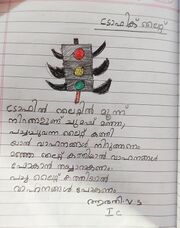 ട്രാഫിക് ലൈറ്റ്
ട്രാഫിക് ലൈറ്റിൽ മൂന്ന്
നിറങ്ങളുണ്ട് ചുമപ്പ് മഞ്ഞ,
പച്ചചുമന്ന ലൈറ്റ് കത്തി
യാൽ വാഹനങ്ങൾ നിറുത്തണം
മഞ്ഞ ലൈറ്റ് കത്തിയാൽ വാഹനങ്ങൾ
പോകാൻ തയ്യാറാകണം.
പച്ച ലൈറ്റ് കത്തിയാൽ
വാഹനങ്ങൾ പോകണം
V S
I C